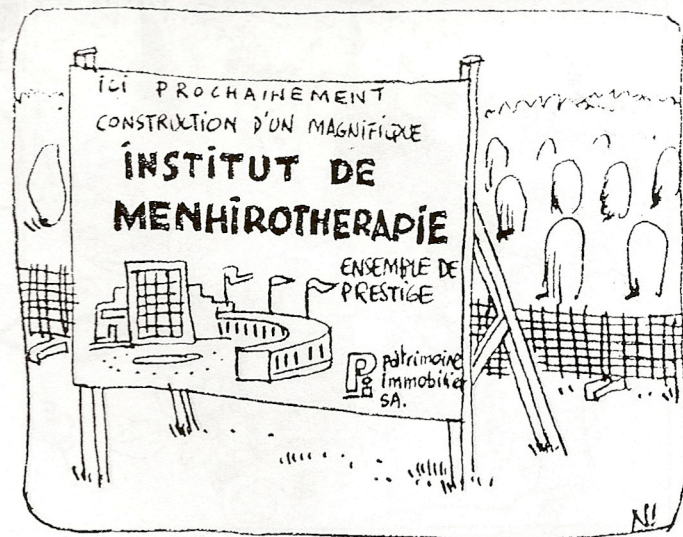 ICI PROCHAINEMENT
CONSTRUCTION D'UN MAGNIFIQUE
INSTITUT DE
MENHIROTHERAPIE
ENSEMBLE DE
PRESTIGE
Pi patrimoine
immobilier
SA.
N!